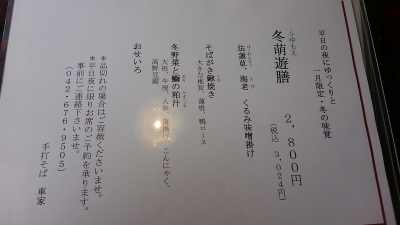 平日の夜にゆっくりと
一月限定・冬の味覚
冬萌遊膳 2,800円
(税込 3,024円)
法蓮草、海老 くるみ味噌掛け
そばがき鍬焼き
大きな椎茸、蓮根、鴨ロース
冬野菜と鰤の粕汁
大根、牛蒡、人参、 こんにゃく、
高野豆腐
おせいろ
*品切れの場合はご容赦くださいませ。
*平日夜に限りお席のご予約を承ります。
事前にご連絡下さいませ。
(042・676・9505)
手打そば 車家